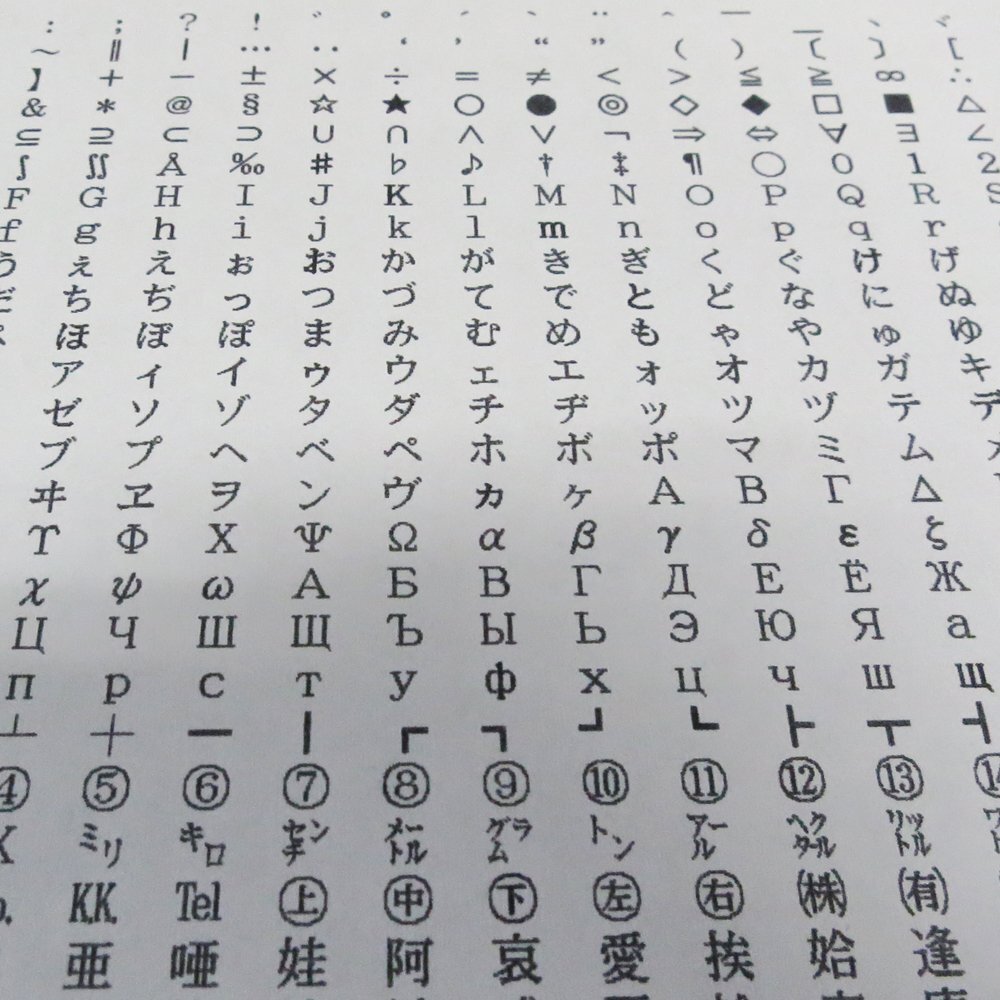 : ; ? ! ゛ ゜ ´ ｀ ¨ ＾ ￣ ＿ ヽ ヾ
～ ∥ ｜ … ‥ ‘ ’ “ ” （ ） 〔 〕 ［
】 ＋ － ± × ÷ ＝ ≠ ＜ ＞ ≦ ≧ ∞ ∴
＆ ＊ ＠ § ☆ ★ ○ ● ◎ ◇ ◆ □ ■ △
⊆ ⊇ ⊂ ⊃ ∪ ∩ ∧ ∨ ￢ ⇒ ⇔ ∀ ∃ ∠
∫ ∬ Å ‰ ♯ ♭ ♪ † ‡ ¶ ◯ 0 1 2
F G H I J K L M N O P Q R S
f g h i j k l m n o p q r
う ぇ え ぉ お か が き ぎ く ぐ け げ
だ ち ぢ っ つ づ て で と ど な に ぬ
ほ ぼ ぽ ま み む め も ゃ や ゅ ゆ
ア ィ イ ゥ ウ ェ エ ォ オ カ ガ キ
ゼ ソ ゾ タ ダ チ ヂ ッ ツ ヅ テ デ
ブ プ ヘ ベ ペ ホ ボ ポ マ ミ ム
ヰ ヱ ヲ ン ヴ ヵ ヶ Α Β Γ Δ
Υ Φ Χ Ψ Ω α β γ δ ε ζ
χ ψ ω А Б В Г Д Е Ё Ж
Ц Ч Ш Щ Ъ Ы Ь Э Ю Я а
п р с т у ф х ц ч ш щ
┴ ┼ ━ ┃ ┏ ┓ ┛ ┗ ┣ ┳ ┫
④ ⑤ ⑥ ⑦ ⑧ ⑨ ⑩ ⑪ ⑫ ⑬ ⑭
㍉ ㌔ ㌢ ㍍ ㌘ ㌧ ㌃ ㌶ ㍑
K.K. Tel ㊤ ㊥ ㊦ ㊧ ㊨ ㈱ ㈲
亜 唖 娃 阿 哀 愛 挨 姶 逢